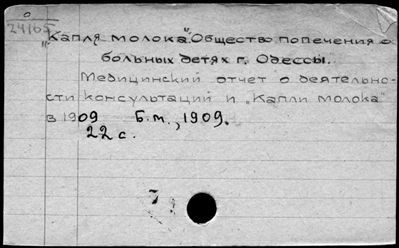 24165
"Капля молока". Общество попечения о
больных детях г. Одессы.
Медицинский отчет о деятельно-
сти консультаций и „Капли молока"
в 1909 Б.м., 1909.
22 с.